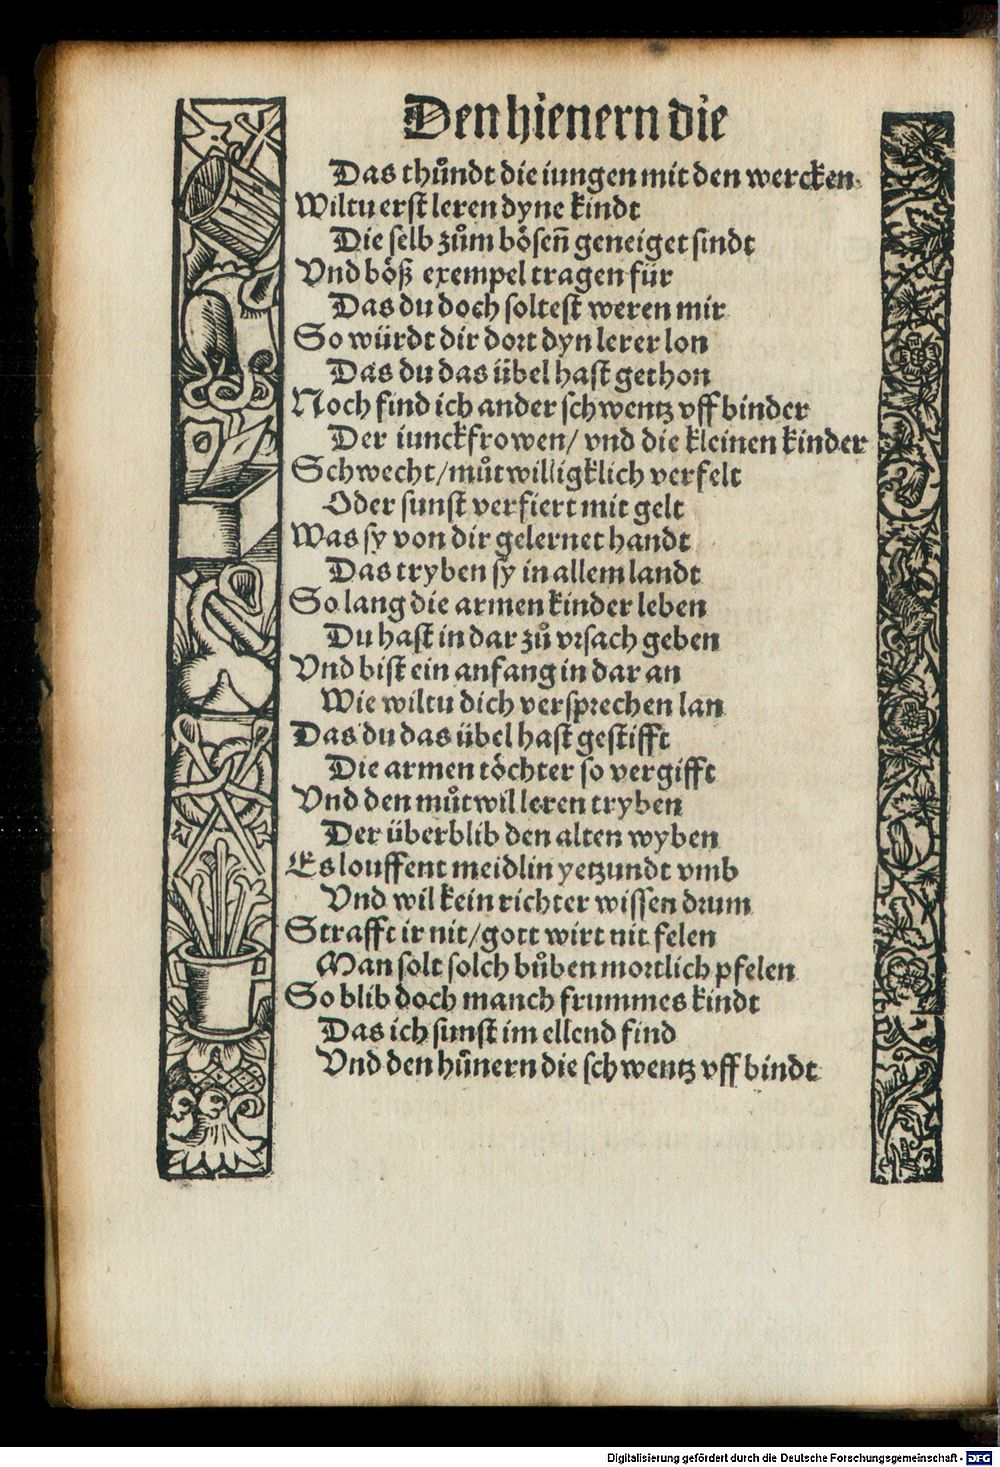 Den hienern die
Das thůndt die iungen mit den wercken
Wiltu erst leren dyne kindt
Die selb zům bösen̄ geneiget sindt
Vnd böß exempel tragen für
Das du doch soltest weren mir
So würdt dir dort dyn lerer lon
Das du das übel hast gethon
Noch find ich ander schwentz vff binder
Der iunckfrowen/ vnd die kleinen kinder
Schwecht/můtwilligklich verfelt
Oder sunst verfiert mit gelt
Was sy von dir gelernet handt
Das tryben sy in allem landt
So lang die armen kinder leben
Du hast in dar zů vrsach geben
Vnd bist ein anfang in dar an
Wie wiltu dich versprechen lan
Das du das übel hast gestifft
Die armen töchter so vergifft
Vnd den můtwil leren tryben
Der überblib den alten wyben
Es louffent meidlin yetzundt vmb
Vnd wil kein richter wissen drum
Strafft ir nit/gott wirt nit felen
Man solt solch bůben mortlich pfelen
So blib doch manch frummes kindt
Das ich sunst im ellend find
Vnd den hůnern die schwentz vff bindt
Digitalisierung gefördert durch die Deutsche Forschungsgemeinschaft - DFG